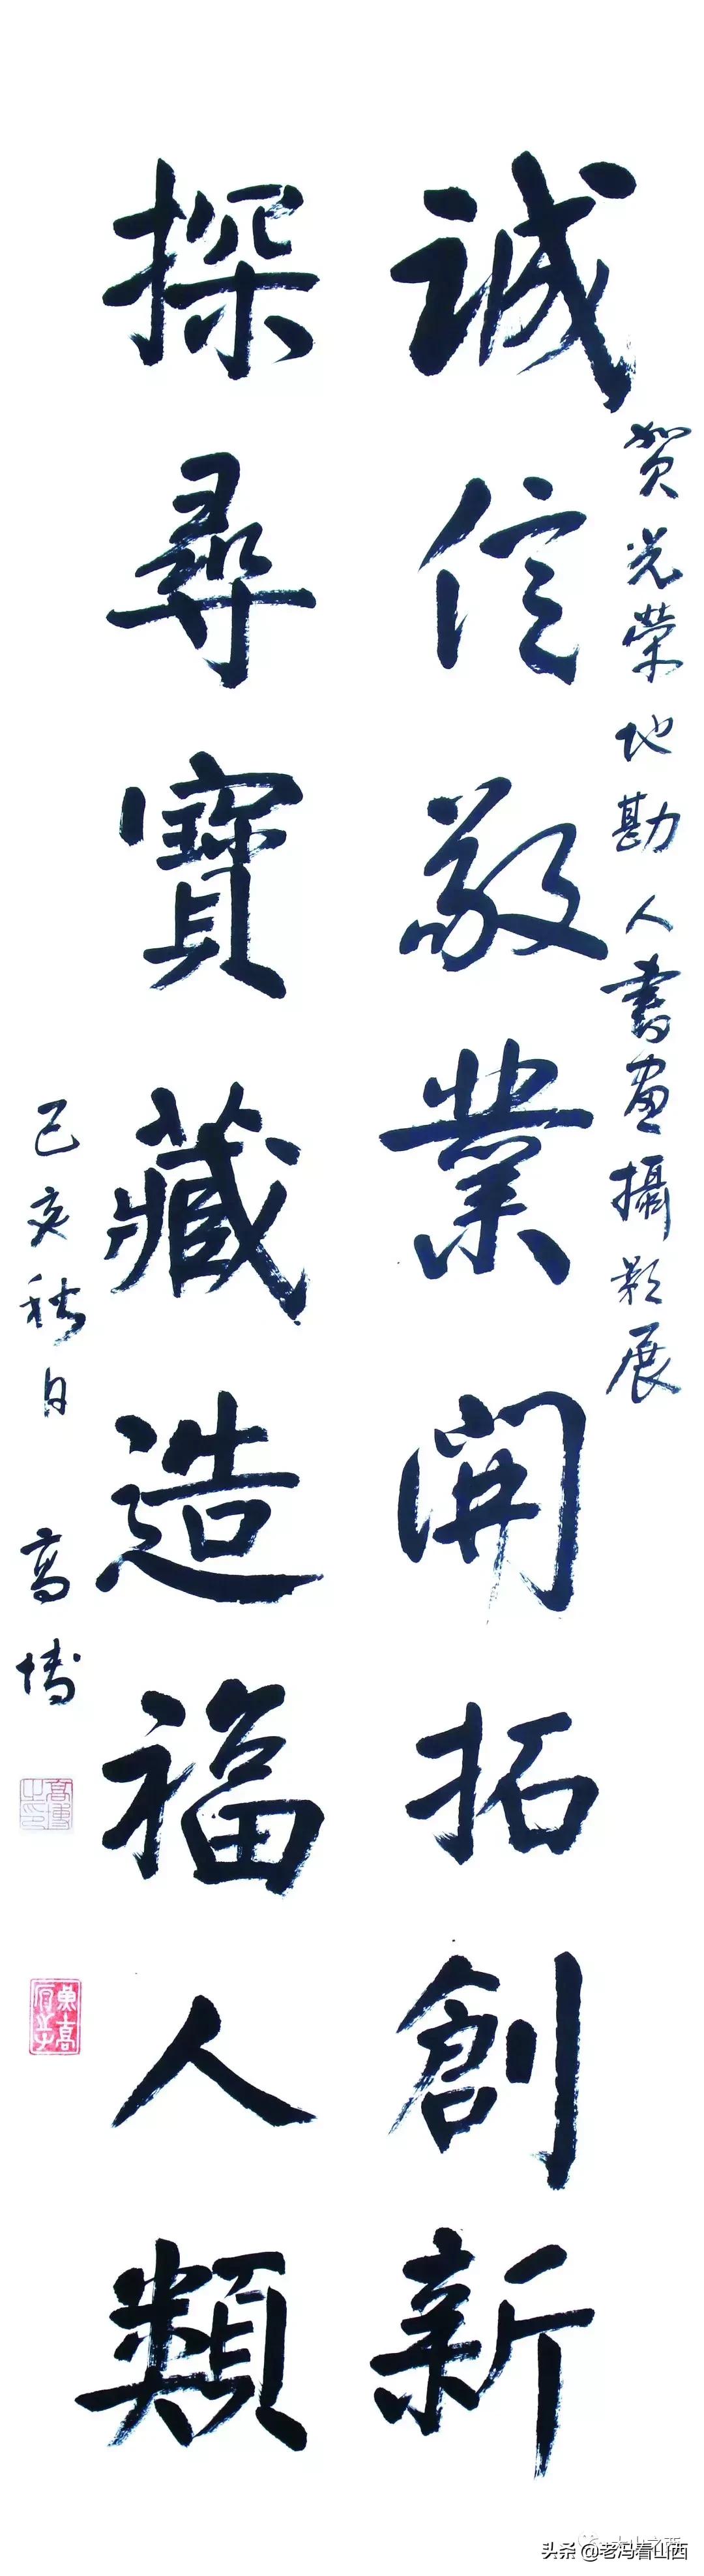 賀光荣地勘人書画攝影展
誠信敬業開拓創新
探尋寶藏造福人類
己亥秋月 高博
大山之西
头条 @老冯看山西